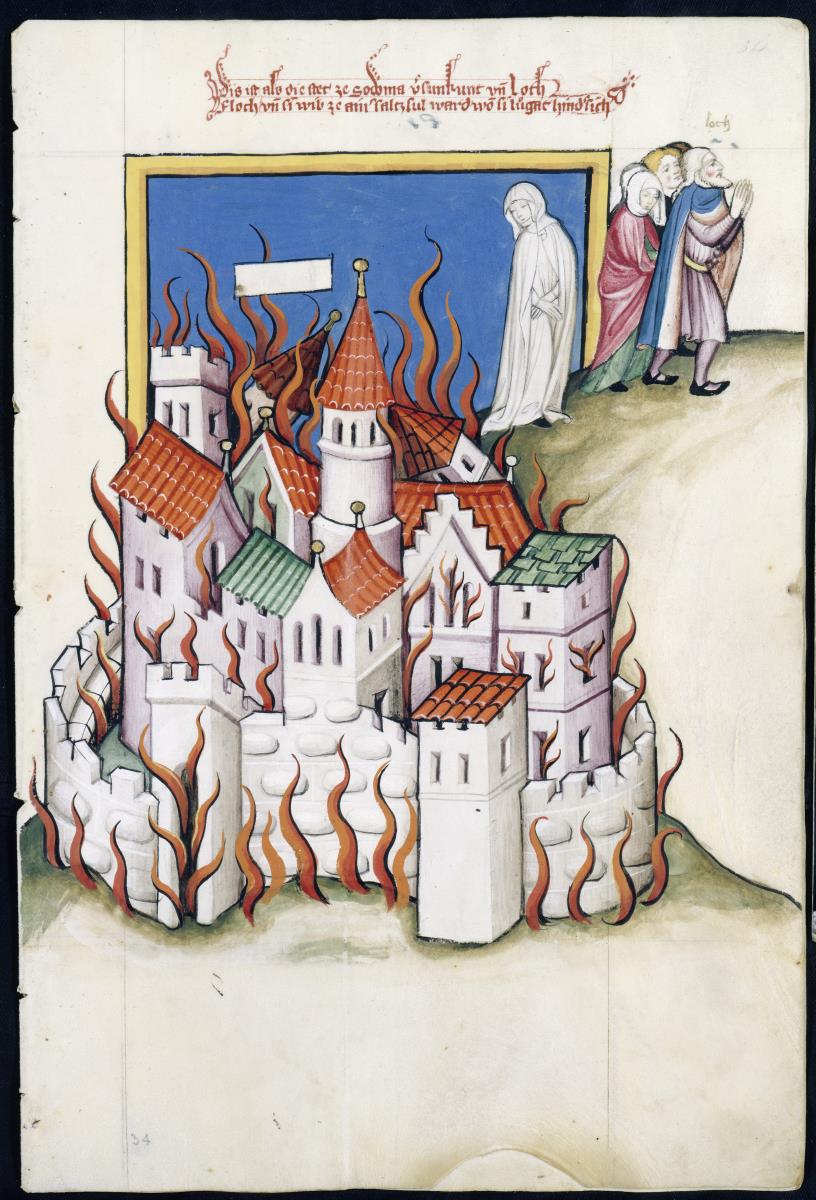 Dis ist als die stet ze Sodoma v̓sunkunt vn̄ Loth
Floch vn̄ si wib ze ain saltzsul ward wō si lugat hindsich
loth
34
34